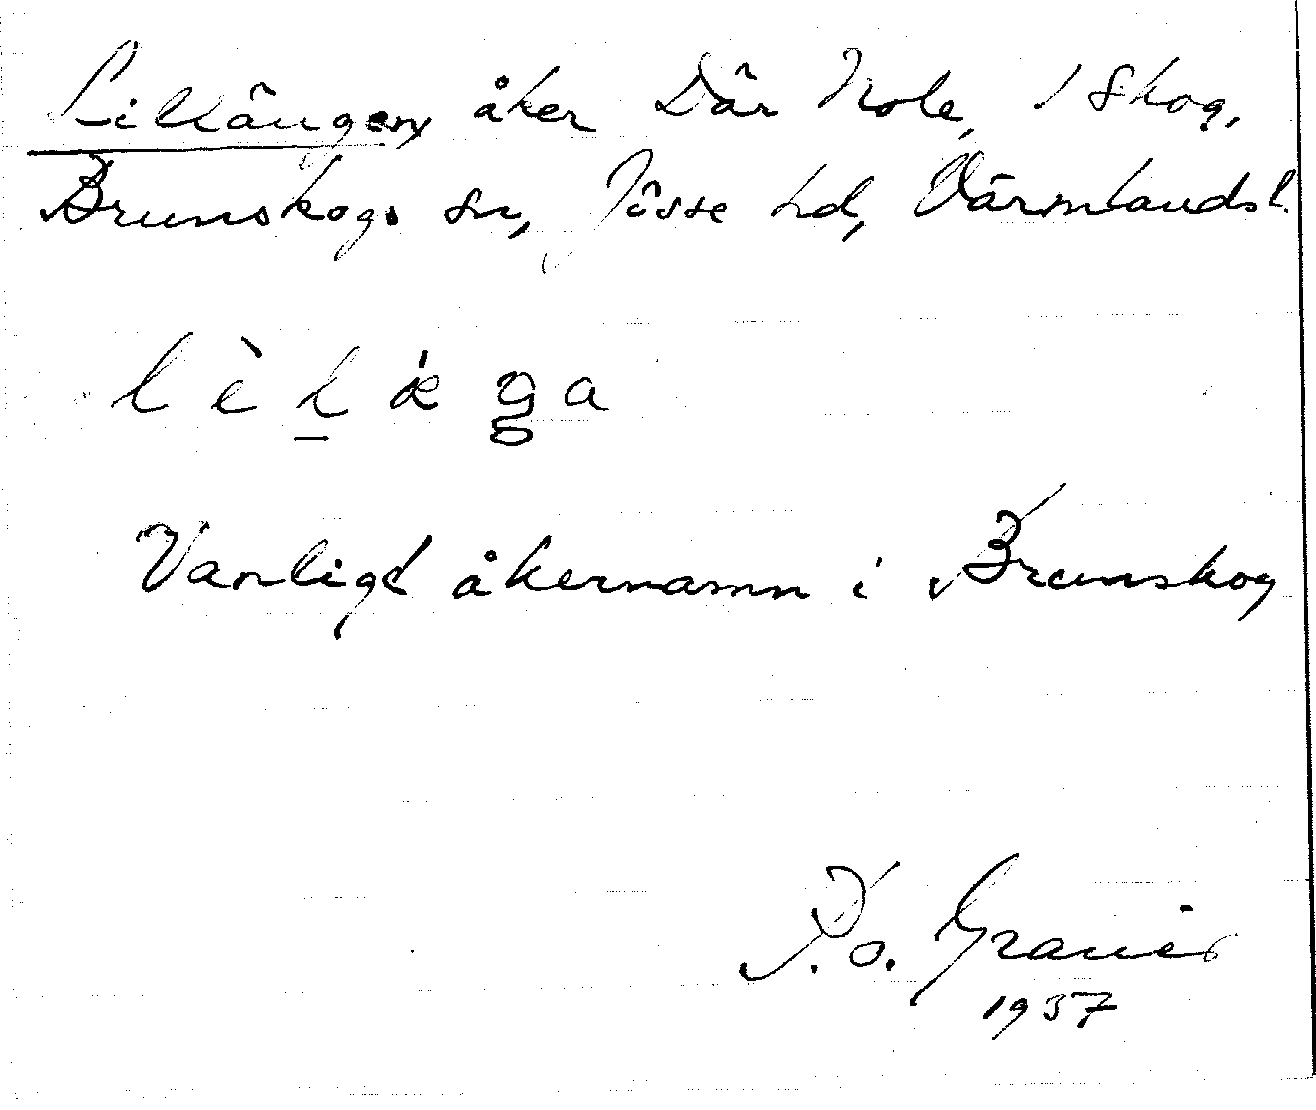 Lillängen, åker Där Nole, 1 Skog,
Brunskogs sn, Jösse hd, Värmlands l.
lèl̠ǽga
Vanligt åkernamn i Brunskog
P.o.
1937